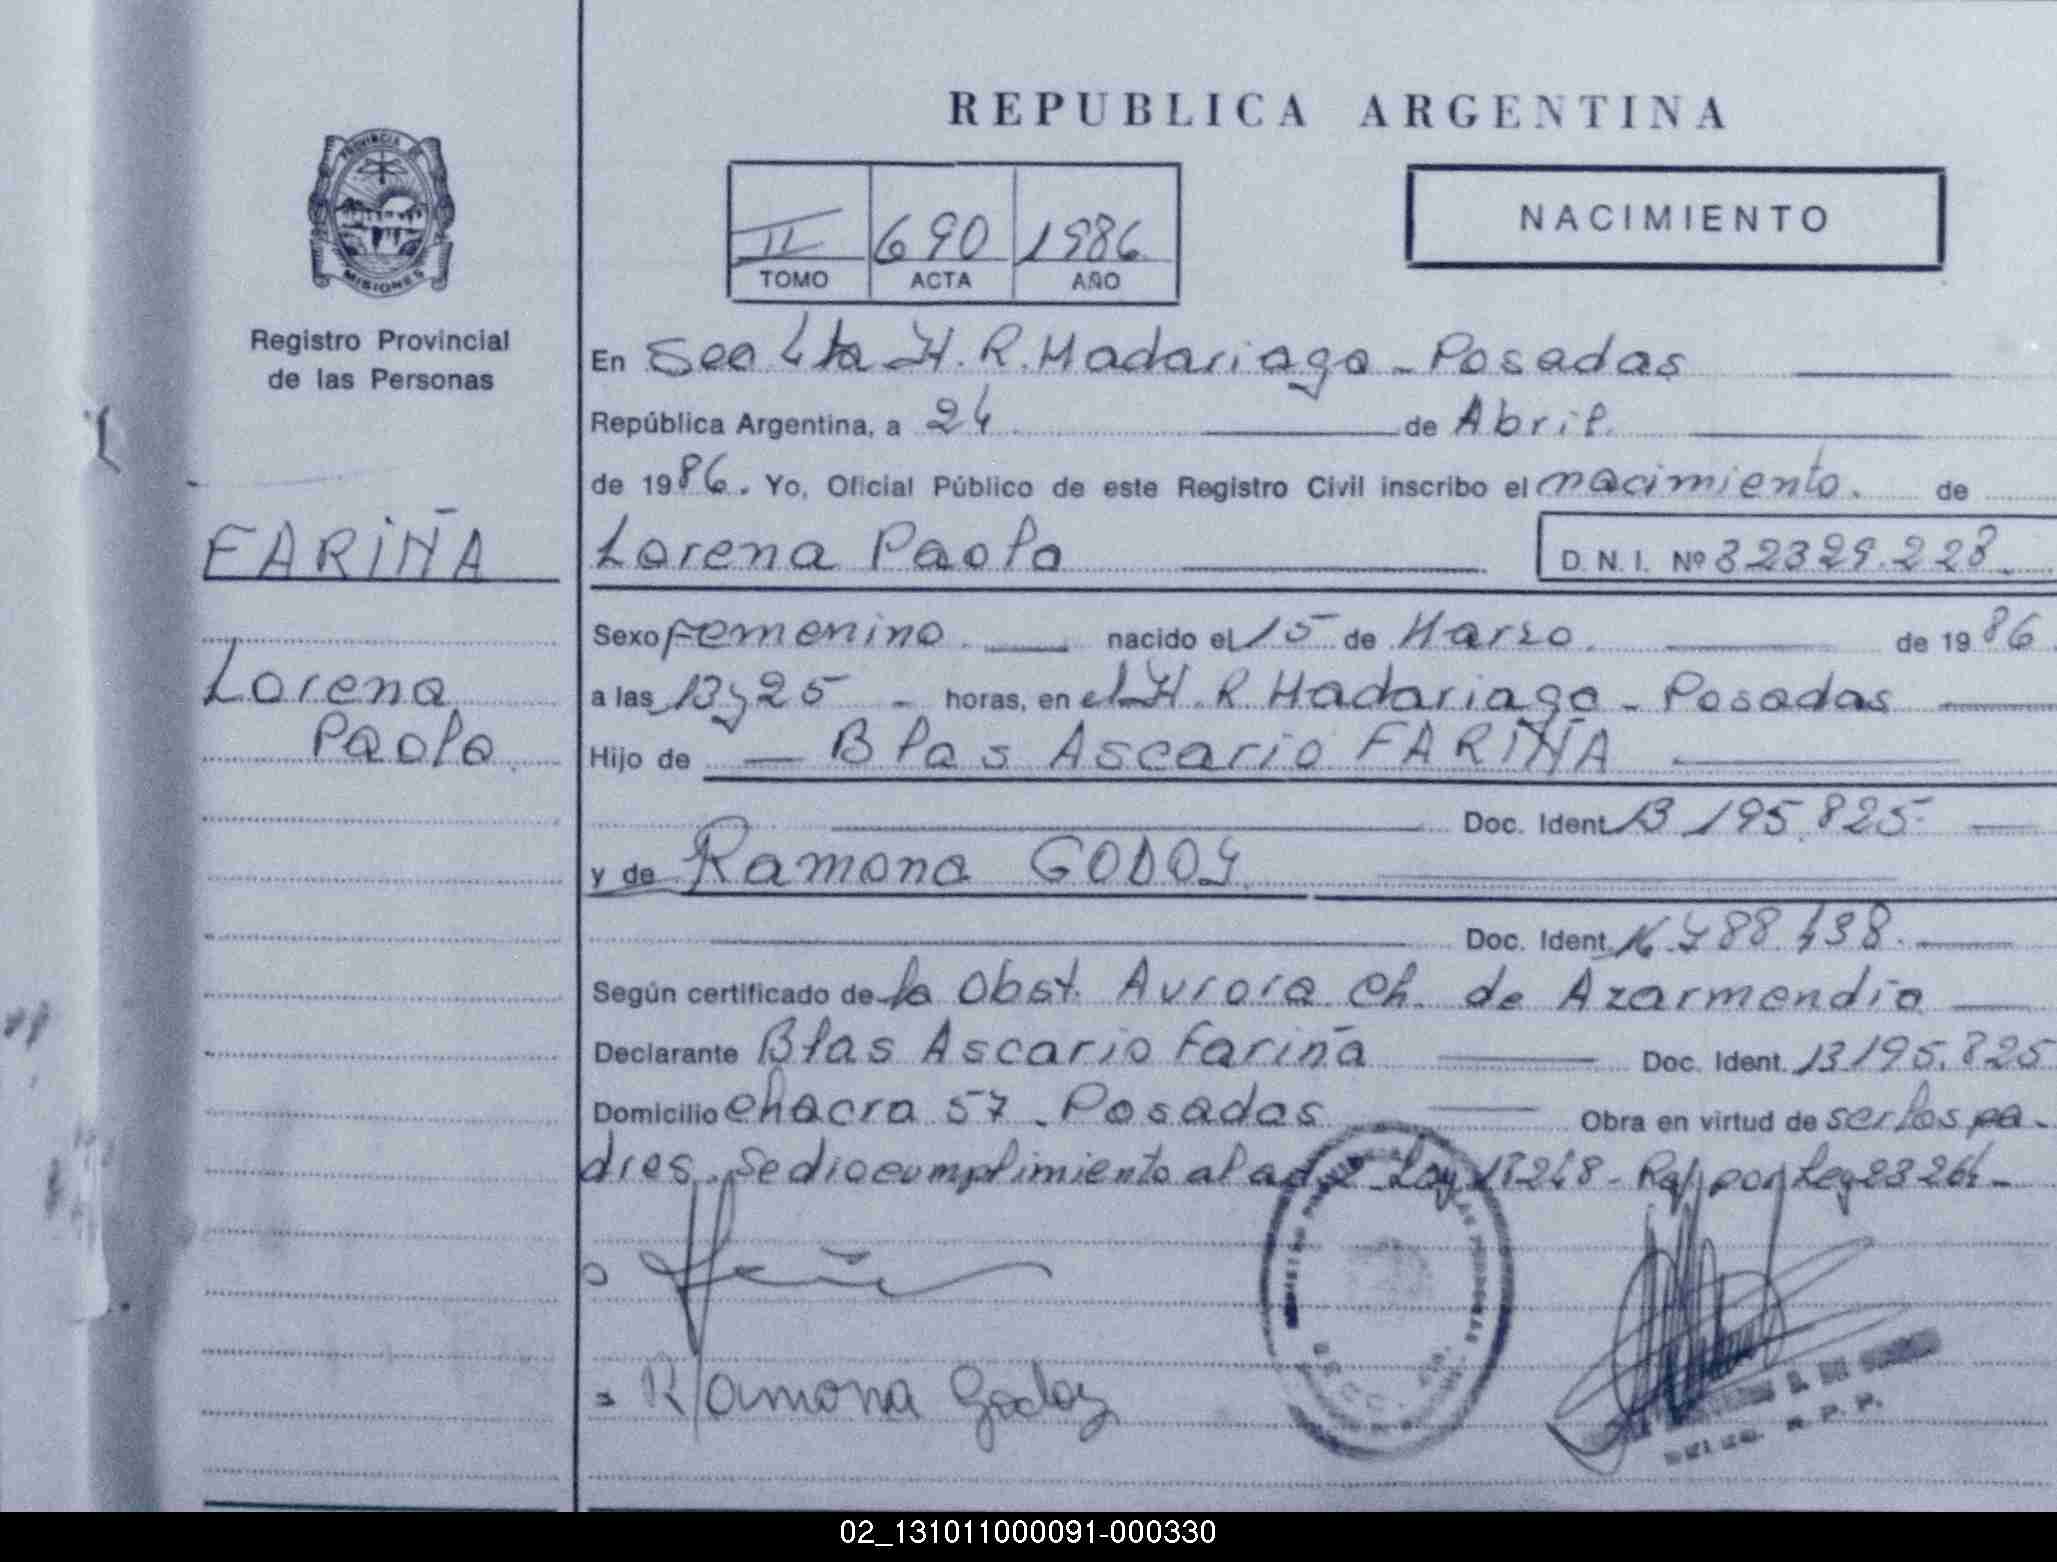 REPUBLICA ARGENTINA
PROVINCIA DE
MISIONES
Registro Provincial
de las Personas
II 690 1986
TOMO ACTA AÑO
NACIMIENTO
FARIÑA
Lorena
Paola
En Sec 4ta H. R. Madariaga - Posadas
República Argentina, a 24 de Abril
de 1986. Yo, Oficial Público de este Registro Civil inscribo el nacimiento. de
Lorena Paola D. N. I. Nº 32329.223
Sexo Femenino nacido el 15 de Marzo de 1986
a las 13 y 25 - horas, en el H. R. Madariaga - Posadas
Hijo de Blas Ascario FARIÑA
Doc. Ident. 13 195.825
y de Ramona GODOY
Doc. Ident. 16.788.438
Según certificado de la Obst. Aurora Ch. de Azarmendia
Declarante Blas Ascario Fariña Doc. Ident. 13195.825
Domicilio Chacra 57 - Posadas Obra en virtud de ser los pa-
dres. Se dio cumplimiento al ad. 2 - Ley 18248 - Ref por Ley 23264 -
Ramona Godoy
R. P. P.
02_131011000091-000330